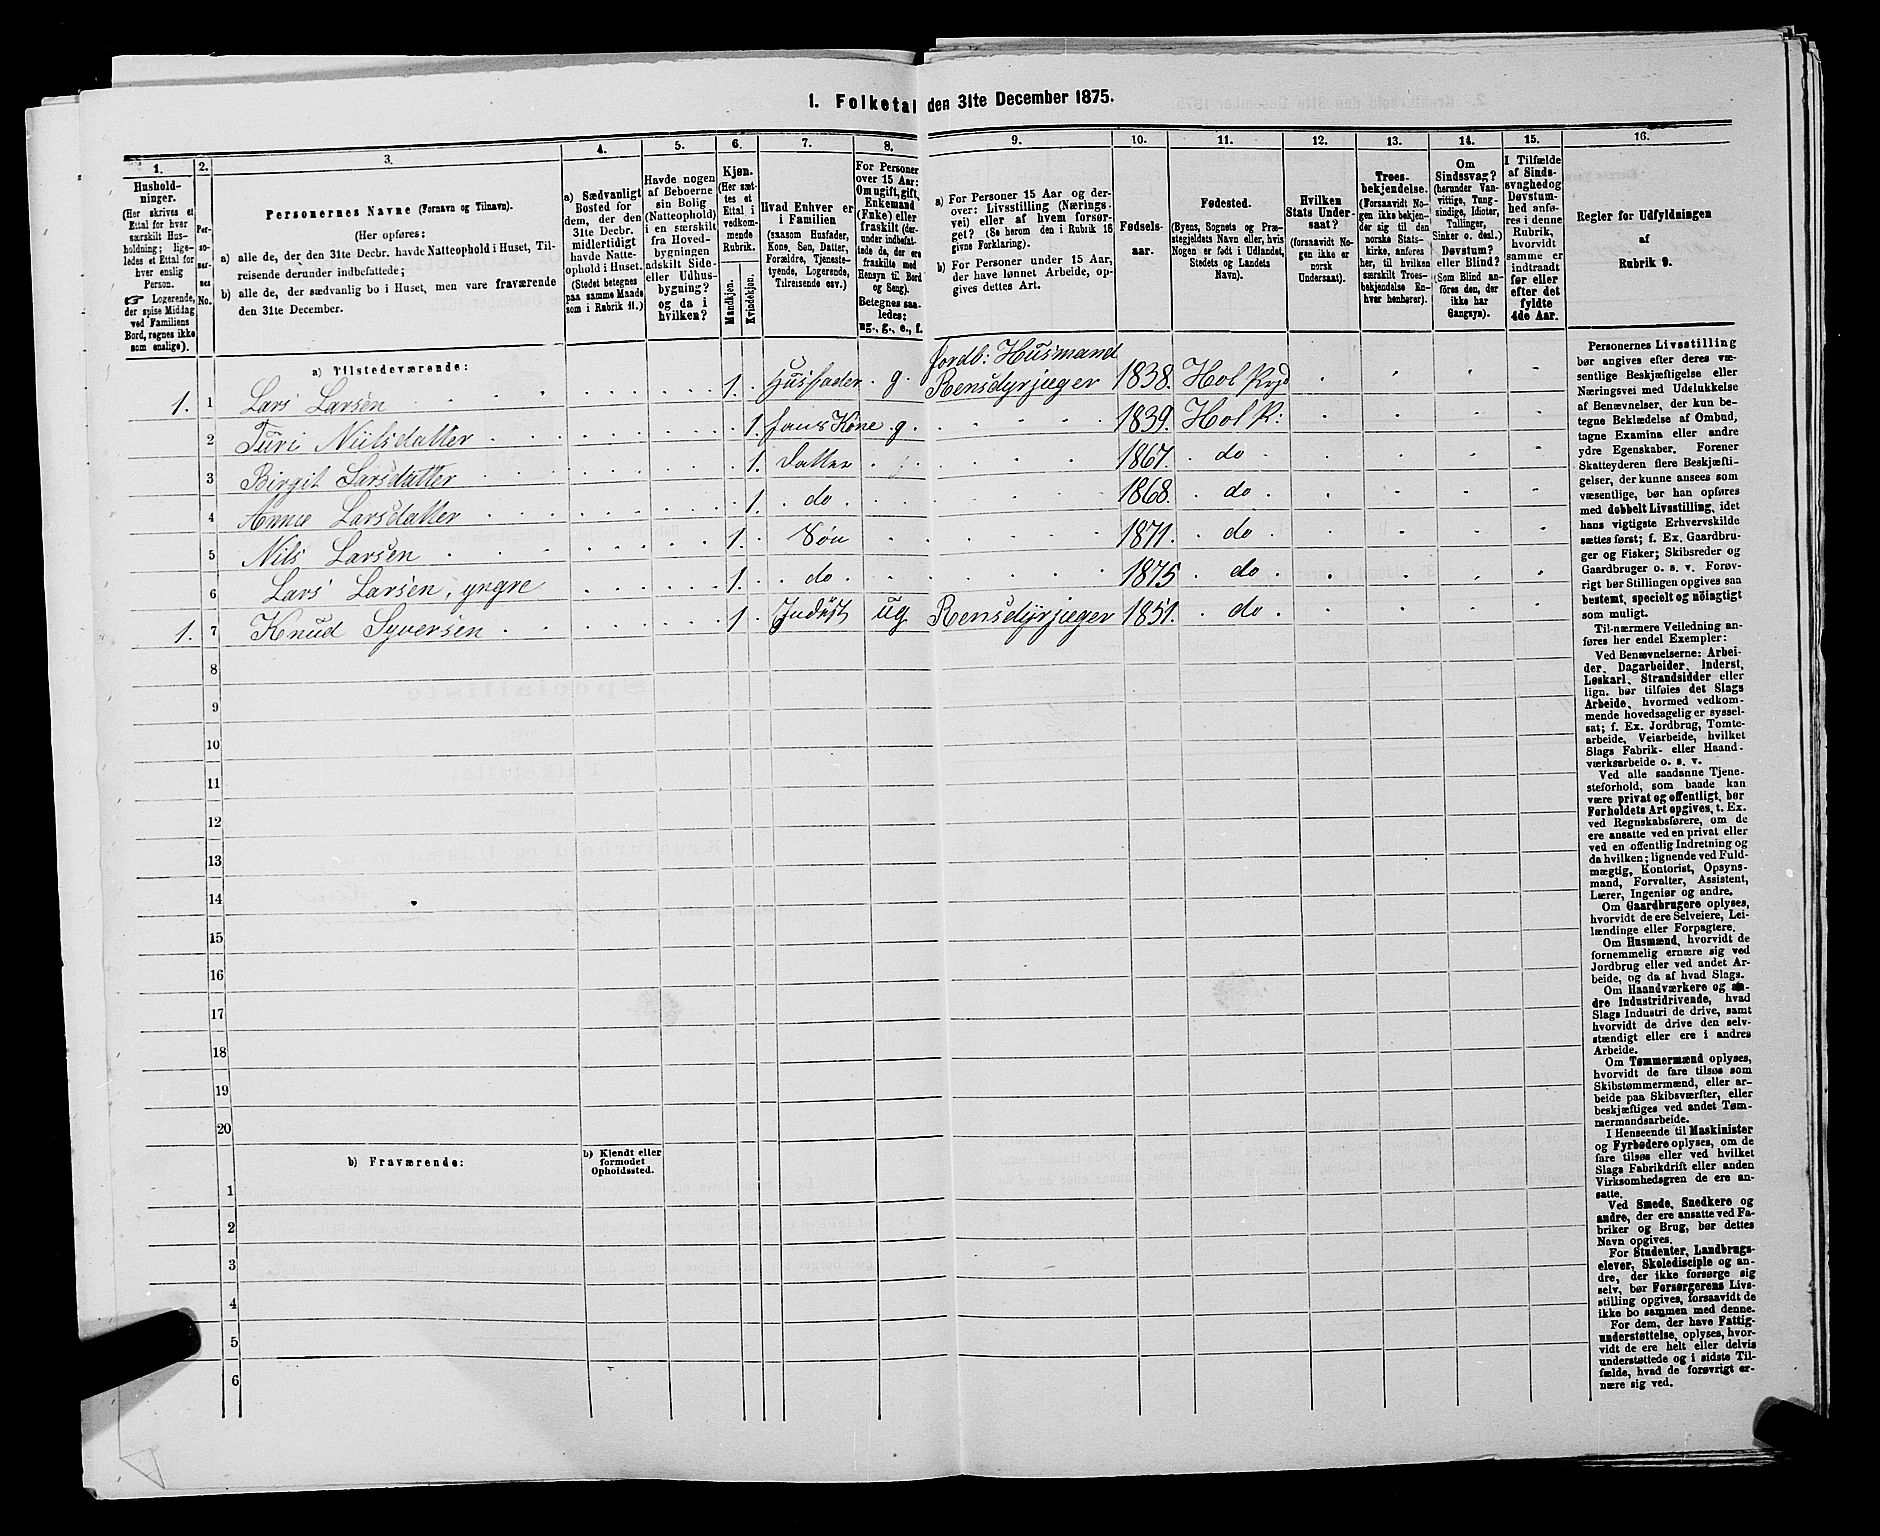 1. Folketal den 31te December 1875.
1. 2. 3. 4. 5. 6. 7. 8. 9. 10. 11. 12. 13. 14. 15. 16.
Hushold-
ninger.
(Her skrives et
Ettal for hver
særskilt Hus-
holdning; lige-
ledes et Ettal for
hver enslig
Person.
☞ Logerende,
der spise Middag
ved Familiens
Bord, regnes ikke
som enslige).
Per-
so-
ner-
nes
No.
Personernes Navne (Fornavn og Tilnavn).
(Her opføres:
a) alle de, der den 31te Decbr. havde Natteophold i Huset, Til-
reisende derunder indbefattede;
b) alle de, der sædvanlig bo i Huset, men vare fraværende
den 31te December.
a) Sædvanligt
Bosted for
dem, der den
31te Decbr.
midlertidigt
havde Natte-
ophold i Huset.
(Stedet betegnes
paa samme Maade
som i Rubrik 11.)
Havde nogen
af Beboerne
sin Bolig
(Natteophold)
i en særskilt
fra Hoved-
bygningen
adskilt Side-
eller Udhus-
bygning?
og da i
hvilken?
Kjøn.
(Her sæt-
tes et
Ettal i
vedkom-
mende
Rubrik.
Mandkjøn.
Kvindekjøn.
Hvad Enhver er
i Familien
(saasom Husfader,
Kone, Søn, Datter,
Forældre, Tjeneste-
tyende, Logerende,
Tilreisende osv.)
For Personer
over 15 Aar:
Om ugift, gift,
Enkemand
(Enke) eller
fraskilt (der-
under indbefat-
tede de, der ere
fraskilte med
Hensyn til Bord
og Seng).
Betegnes saa-
ledes:
ug., g., e., f.
a) For Personer 15 Aar og der-
over: Livsstilling (Nærings-
vei) eller af hvem forsør-
get? (Se herom den i Rubrik 16
givne Forklaring).
b) For Personer under 15 Aar,
der have lønnet Arbeide, op-
gives dettes Art.
Fødsels-
aar.
Fødested.
(Byens, Sognets og Præ-
stegjeldets Navn eller, hvis
Nogen er født i Udlandet,
Stedets og Landets
Navn).
Hvilken
Stats Under-
saat?
(forsaavidt No-
gen ikke er
norsk
Undersaat).
Troes-
bekjendelse.
(Forsaavidt No-
gen ikke bekjen-
der sig til den
norske Stats-
kirke, anføres
her, til hvilken
særskilt Troes-
bekjendelse En-
hver henhører).
Om
Sindssvag?
(herunder Van-
vittige, Tung-
sindige, Idioter,
Tullinger,
Sinker o. desl.)
Døvstum?
eller Blind?
(Som Blind an-
føres den, der
ikke har
Gangsyn).
I Tilfælde
af Sinds-
svaghed og
Døvstum-
hed anfø-
res i denne
Rubrik,
hvorvidt
samme er
indtraadt
før eller
efter det
fyldte
4de Aar.
Regler for Udfyldningen
af
Rubrik 9.
a) Tilstedeværende:
Jordb: Husmand
1. 1 Lars Larsen 1. Husfader g. Rensdyrjæger 1838. Hol Prgd
2 Turi Nilsdatter 1. hans Kone g. 1839. Hol P:
3 Birgit Larsdatter 1. Datter 1867. do
4 Anne Larsdatter 1. do 1868. do
5 Nils Larsen 1. Søn 1871. do
6 Lars Larsen, yngre 1. do 1875 do
1. 7 Knud Syversen 1. Inderst ug Rensdyrjæger 1851. do
8
9
10
11
12
13
14
15
16
17
18
19
20
b) Fraværende:
b) Kjendt eller
formodet
Opholdssted.
1
2
3
4
5
6
Personernes Livsstilling
bør angives efter deres væ-
sentlige Beskjæftigelse eller
Næringsvei med Udelukkelse
af Benævnelser, der kun be-
tegne Beklædelse af Ombud,
tagne Examina eller andre
ydre Egenskaber. Forener
Skatteyderen flere Beskjæfti-
gelser, der kunne ansees som
væsentlige, bør han opføres
med dobbelt Livsstilling, idet
hans vigtigste Erhvervskilde
sættes først; f. Ex. Gaardbru-
ger og Fisker; Skibsreder og
Gaardbruger o. s. v. Forøv-
rigt bør Stillingen opgives saa
bestemt, specielt og nøiagtigt
som muligt.
Til nærmere Veiledning an-
føres her endel Exempler:
Ved Benævnelserne: Arbei-
der, Dagarbeider, Inderst,
Løskarl, Strandsidder eller
lign. bør tilføies det Slags
Arbeide, hvormed vedkom-
mende hovedsagelig er syssel-
sat; f. Ex. Jordbrug, Tomte-
arbeide, Veiarbeide, hvilket
Slags Fabrik- eller Haand-
værksarbeide o. s. v.
Ved alle saadanne Tjene-
steforhold, som baade kan
være privat og offentligt, bør
Forholdets Art opgives, t. Ex.
ved Regnskabsførere, om de
ere ansatte ved en privat eller
ved en offentlig Indretning og
da hvilken; lignende ved Fuld-
mægtig, Kontorist, Opsyns-
mand, Forvalter, Assistent,
Lærer, Ingeniør og andre.
Om Gaardbrugere oplyses,
hvorvidt de ere Selveiere, Lei-
lændinge eller Forpagtere.
Om Husmænd, hvorvidt de
fornemmelig ernære sig ved
Jordbrug eller ved andet Ar-
beide, og da af hvad Slags.
Om Haandværkere og an-
dre Industridrivende, hvad
Slags Industri de drive, samt
hvorvidt de drive den selv-
stændigt eller ere i andres
Arbeide.
Om Tømmermænd oplyses,
hvorvidt de fare tilsøs som
Skibstømmermænd, eller ar-
beide paa Skibsværfter, eller
beskjæftiges ved andet Tøm-
mermandsarbeide.
I Henseende til Maskinister
og Fyrbødere oplyses, om de
fare tilsøs eller ved hvilket
Slags Fabrikdrift eller anden
Virksomhedsgren de ere an-
satte.
Ved Smede, Snedkere og
andre, der ere ansatte ved Fa-
briker og Brug, bør dettes
Navn opgives.
For Studenter, Landbrugs-
elever, Skoledisciple og an-
dre, der ikke forsørge sig
selv, bør Forsørgerens Livs-
stilling opgives, forsaavidt de
ikke bo sammen med denne.
For dem, der have Fattig-
understøttelse, oplyses, hvor-
vidt de ere helt eller delvis
understøttede og i sidste Til-
fælde, hvad de forøvrigt er-
nære sig ved.